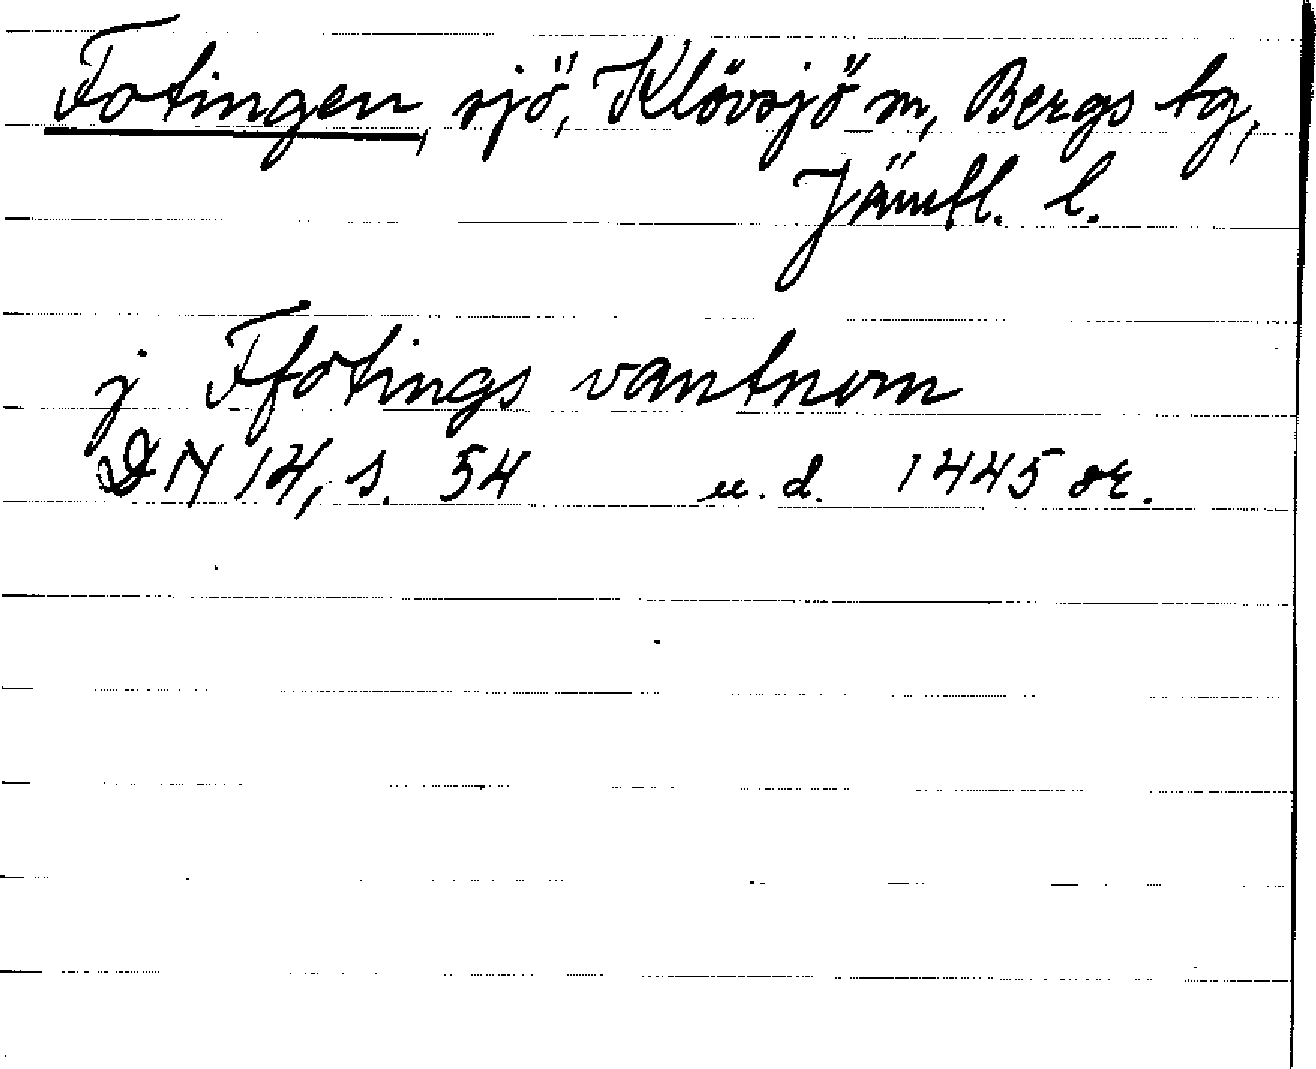 Fotingen, sjö, Klövsjö sn, Bergs tg,
Jämtl. l.
j Ffotings vantnom
DN 14, s. 54 u. d. 1445 or.